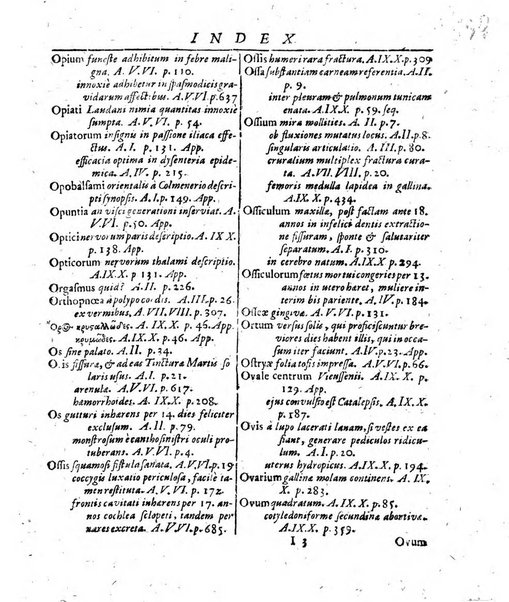 INDEX
Opium funeste adhibitum in febre mali-
gna. A. V. VI. p. 110.
innoxiè adhibetur in spasmodicis gra-
vidarum affectibus. A. V. VI. p. 637
Opiati Laudani nimia quantitas innoxiè
sumpta. A. V. VI. p. 54.
Opiatorum insignis in passione iliaca effe-
ctus. A. I. p. 131. App.
efficacia optima in dysenteria epide-
mica. A. IV. p. 215.
Opobalsami orientalis à Colmenerio descri-
pti synopsis. A. I. p. 149. App.
Opuntia an visci generationi inserviat. A.
V. VI. p. 50. App.
Optici nervorum paris descriptio. A. IX X.
p. 138. App.
Opticorum nervorum thalami descriptio.
A. IX. X p. 131. App.
Orgasmus quid? A. II. p. 226.
Orthopnœa à polypo cordis. A. II. p. 26.
ex vermibus. A. VII. VIII. p. 307.
A. IX. X. p. 46. App.
A. IX. X. p. 46. App.
Os sine palato. A. II. p. 34.
Oris fissura, & ad eas Tinctura Martis so
laris usus. A. I. p. 21.
arenula. A. V. VI. p. 617.
hæmorrhoides. A. IX. p. 208.
Os gutturi inhærens per 14. dies feliciter
exclusum. A. II. p. 79.
monstrosum è canthosinistri oculi pro-
tuberans. A. V. VI. p. 4.
Ossis squamosi fistula sanata. A. V. VI. p. 19
coccygis luxatio periculosa, facilè ta-
men restituta. A. V. VI. p. 172.
frontis cavitati inhærens per 17. an-
nos cochlea sclopeti, tandem per
nares excreta. A. V. VI. p. 685.
Ossis humeri rara fractura. A. IX. X. p. 309
Ossa substantiam carneam referentia. A. II.
p. 9.
inter pleuram & pulmonum tunicam
enata. A. IX. p. 59. seq.
Ossium mira mollities. A. II. p. 7.
ob fluxiones mutatus locus. A. II. p. 8.
singularis articulatio. A. III. p. 80.
cruralium multiplex fractura cura-
ta. A. VII. VIII. p. 20.
femoris medulla lapidea in gallina.
A. IX. X. p. 434.
Ossiculum maxillæ, post factam ante 18.
annos in infelici dentis extractio-
ne fissuram, sponte & salutariter
separatum. A. I. p. 30.
in cerebro natum. A. IX. X. p. 294.
Ossiculorum fœtus mortui congeries per 13.
annos in utero hæret, muliere in-
terim bis pariente. A. IV. p. 184.
Osseæ gingivæ. A. V. VI. p. 61.
Ortum versus solis, qui proficiscuntur bre-
viores dies habent illis, qui in occa-
sum iter faciunt. A. IV. p. 23. App.
Ostryæ folia tofis impressa. A. V. VI. p. 66.
Ovale centrum Vieussenii. A. IX. X. p.
129. App.
ejus convulsio est Catalepsis. A. IX. X.
p. 187.
Ovis à lupo lacerati lanam, si vestes ex ea
fiant, generare pediculos ridicu-
lum. A. I. p. 20.
uterus hydropicus. A. IX. X. p. 194.
Ovarium gallinæ molam continens. A. IX.
X. p. 283.
Ovum quadratum. A. IX. X. p. 85.
cotyledoniforme secundinæ abortivæ.
A. IX. X. p. 359.
I 3
Ovum